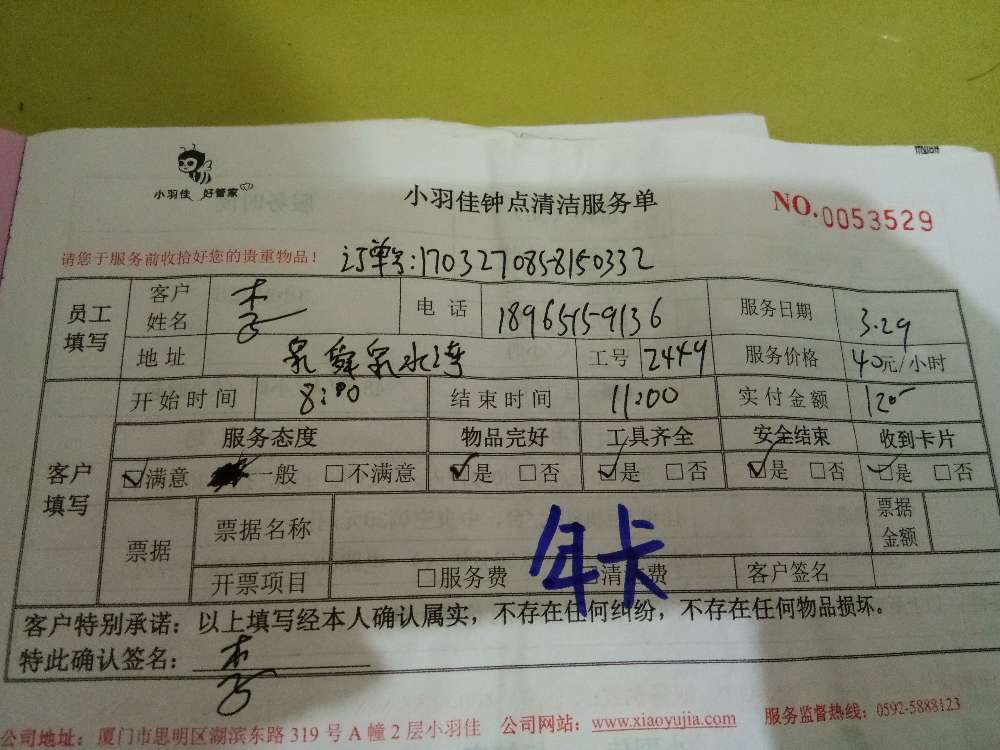 小羽佳 好管家
小羽佳钟点清洁服务单
NO.0053529
请您于服务前收拾好您的贵重物品！ 订单号:1703270858150332
员工填写 客户姓名 李 电话 18965159136 服务日期 3.29
地址 泉舜泉水湾 工号 2449 服务价格 40元/小时
客户填写 开始时间 8:00 结束时间 11:00 实付金额 120
服务态度 物品完好 工具齐全 安全结束 收到卡片
☑满意 一般 □不满意 ☑是 □否 ☑是 □否 ☑是 □否 ☑是 □否
票据 票据名称 票据金额
年卡
开票项目 □服务费 □清洁费 客户签名
客户特别承诺：以上填写经本人确认属实，不存在任何纠纷，不存在任何物品损坏。
特此确认签名： 李
公司地址：厦门市思明区湖滨东路319号A幢2层小羽佳 公司网站：www.xiaoyujia.com 服务监督热线：0592-5888123